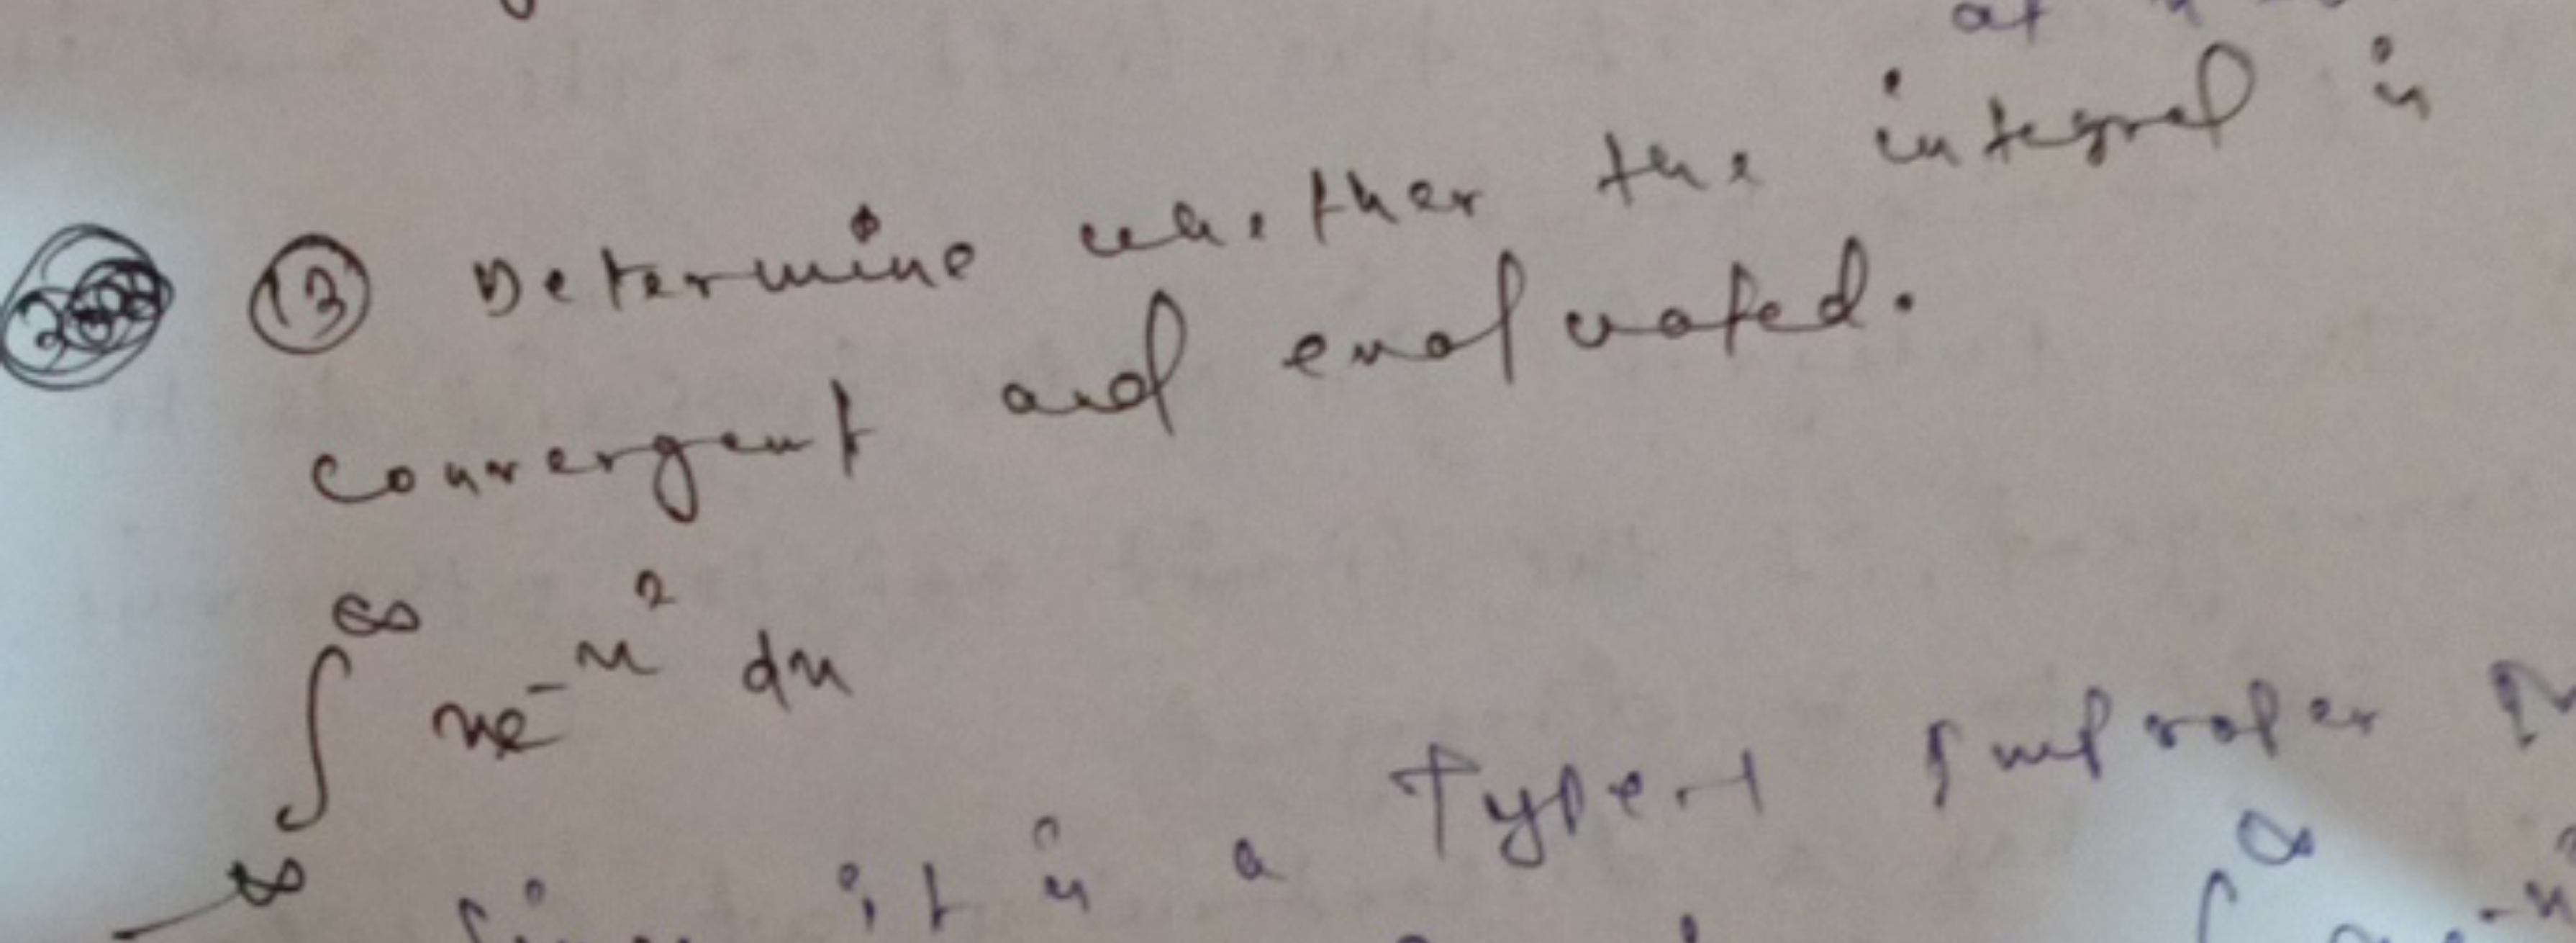 at
(13) Determine whether the integral is
convergent and evaluated.
∫_{-∞}^{∞} xe^{-x^2} dx
it is a Type-1 Improper
∫^{∞}